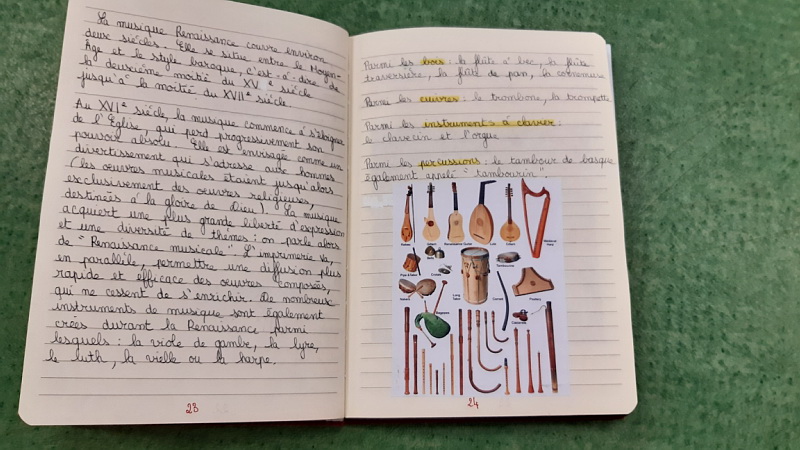 La musique Renaissance couvre environ
deux siècles. Elle se situe entre le Moyen-
Age et le style baroque, c'est-à-dire de
la deuxième moitié du XVe siècle
jusqu'à la moitié du XVIIe siècle.
Au XVIe siècle, la musique commence à s'éloigner
de l'Église, qui perd progressivement son
pouvoir absolu. Elle est envisagée comme un
divertissement qui s'adresse aux hommes
(les oeuvres musicales étaient jusqu'alors
exclusivement des oeuvres religieuses,
destinées à la gloire de Dieu). La musique
acquiert une plus grande liberté d'expression
et une diversité de thèmes : on parle alors
de "Renaissance musicale". L'imprimerie va,
en parallèle, permettre une diffusion plus
rapide et efficace des oeuvres composées,
qui ne cessent de s'enrichir. De nombreux
instruments de musique sont également
créés durant la Renaissance parmi
lesquels : la viole de gambe, la lyre,
le luth, la vielle ou la harpe.
23
Parmi les bois : la flûte à bec, la flûte
traversière, la flûte de pan, la cornemuse
Parmi les cuivres : le trombone, la trompette
Parmi les instruments à clavier :
le clavecin et l'orgue
Parmi les percussions : le tambour de basque
également appelé "tambourin".
Renaissance Guitar
Lute
Medieval
Harp
Tambourine
Long
Tabor
Cornett
Psaltery
24